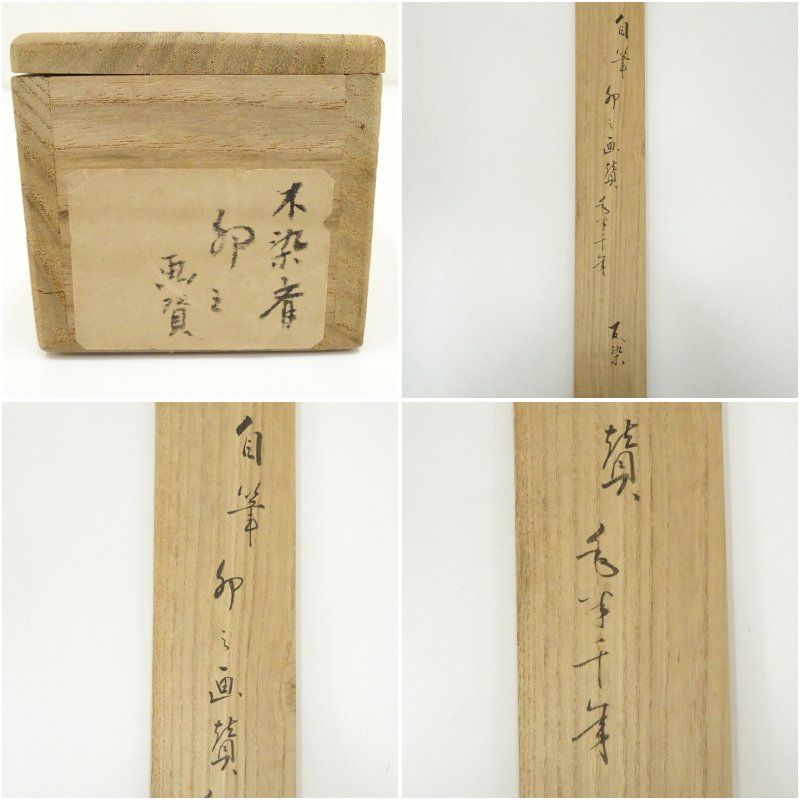 木染斎
卯之
画賛
自筆 卯之画賛 毛 千年
染
自筆 卯之画賛
賛 毛 千年